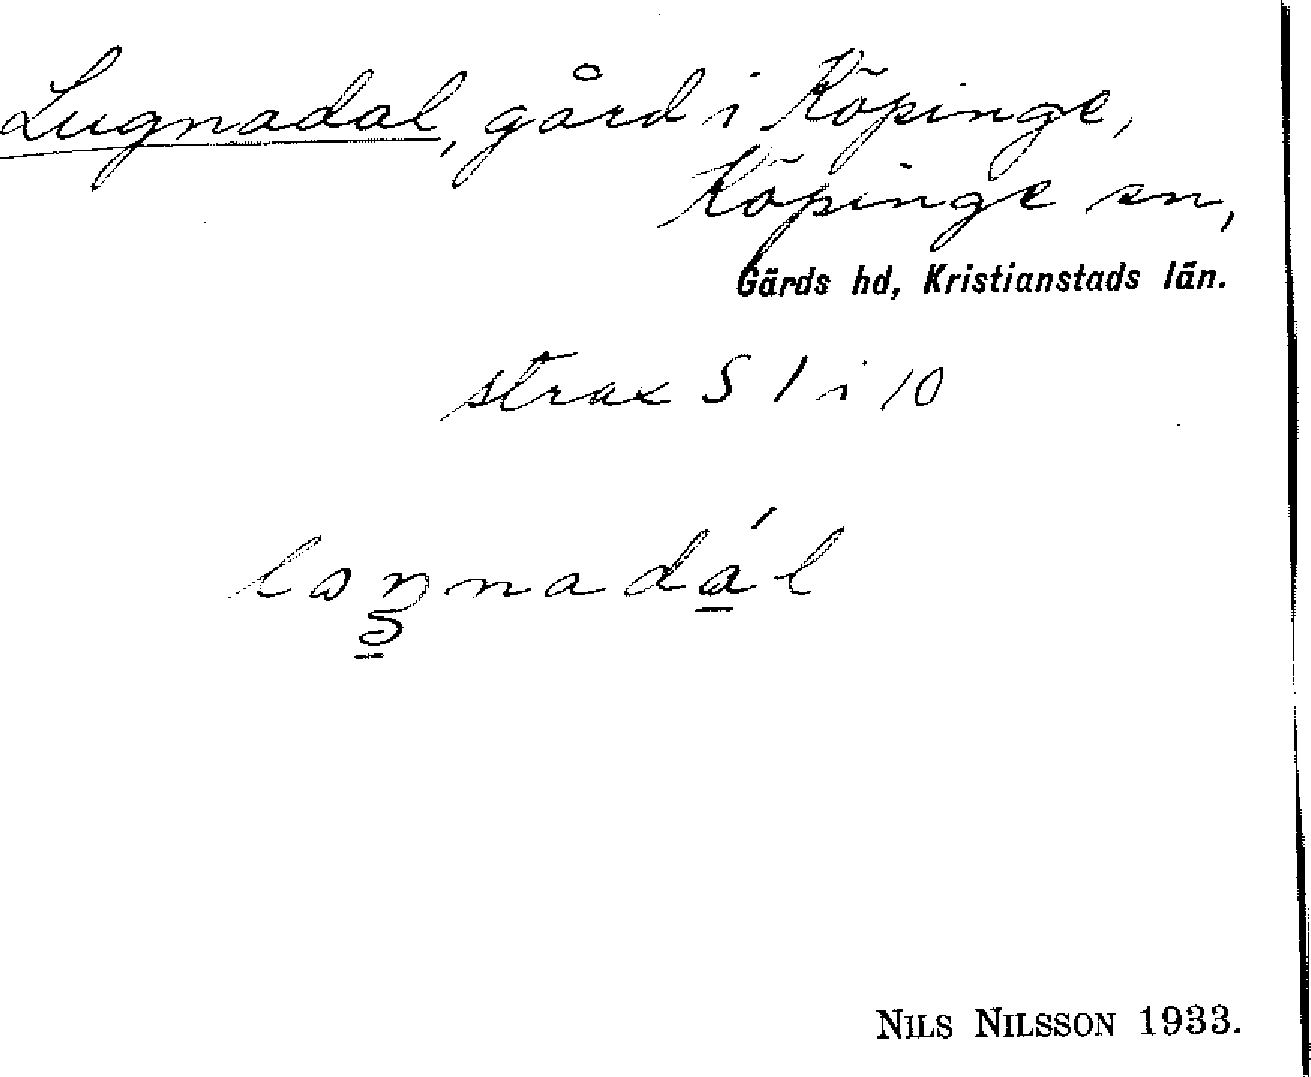 Lugnadal, gård i Köpinge,
Köpinge sn,
Gärds hd, Kristianstads län.
strax S 1 i 10
NILS NILSSON 1933.